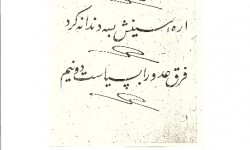 اره سینش بسه دندانه کرد
فرق عدو را بسیاست دو نیم